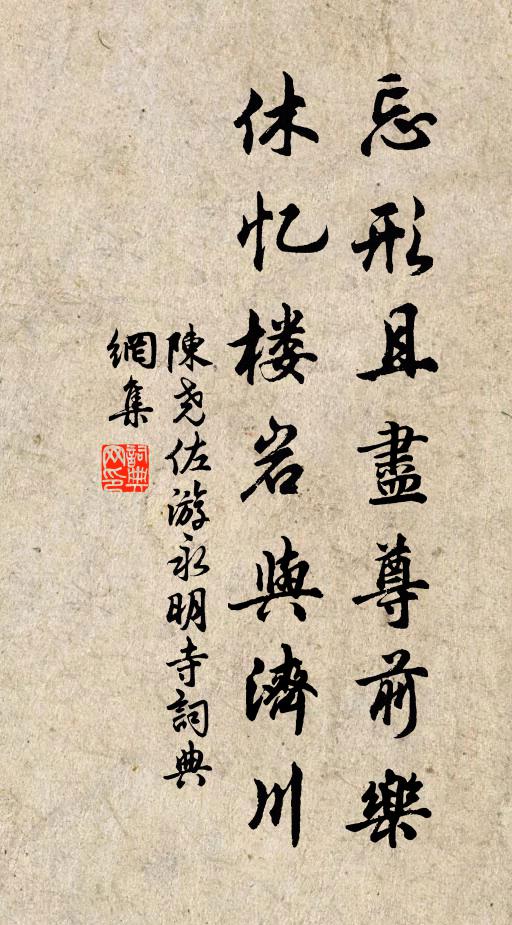 忘形且盡尊前樂
休忆楼岩與濟川
陳尧佐游永明寺詞典
網集
詞典网印